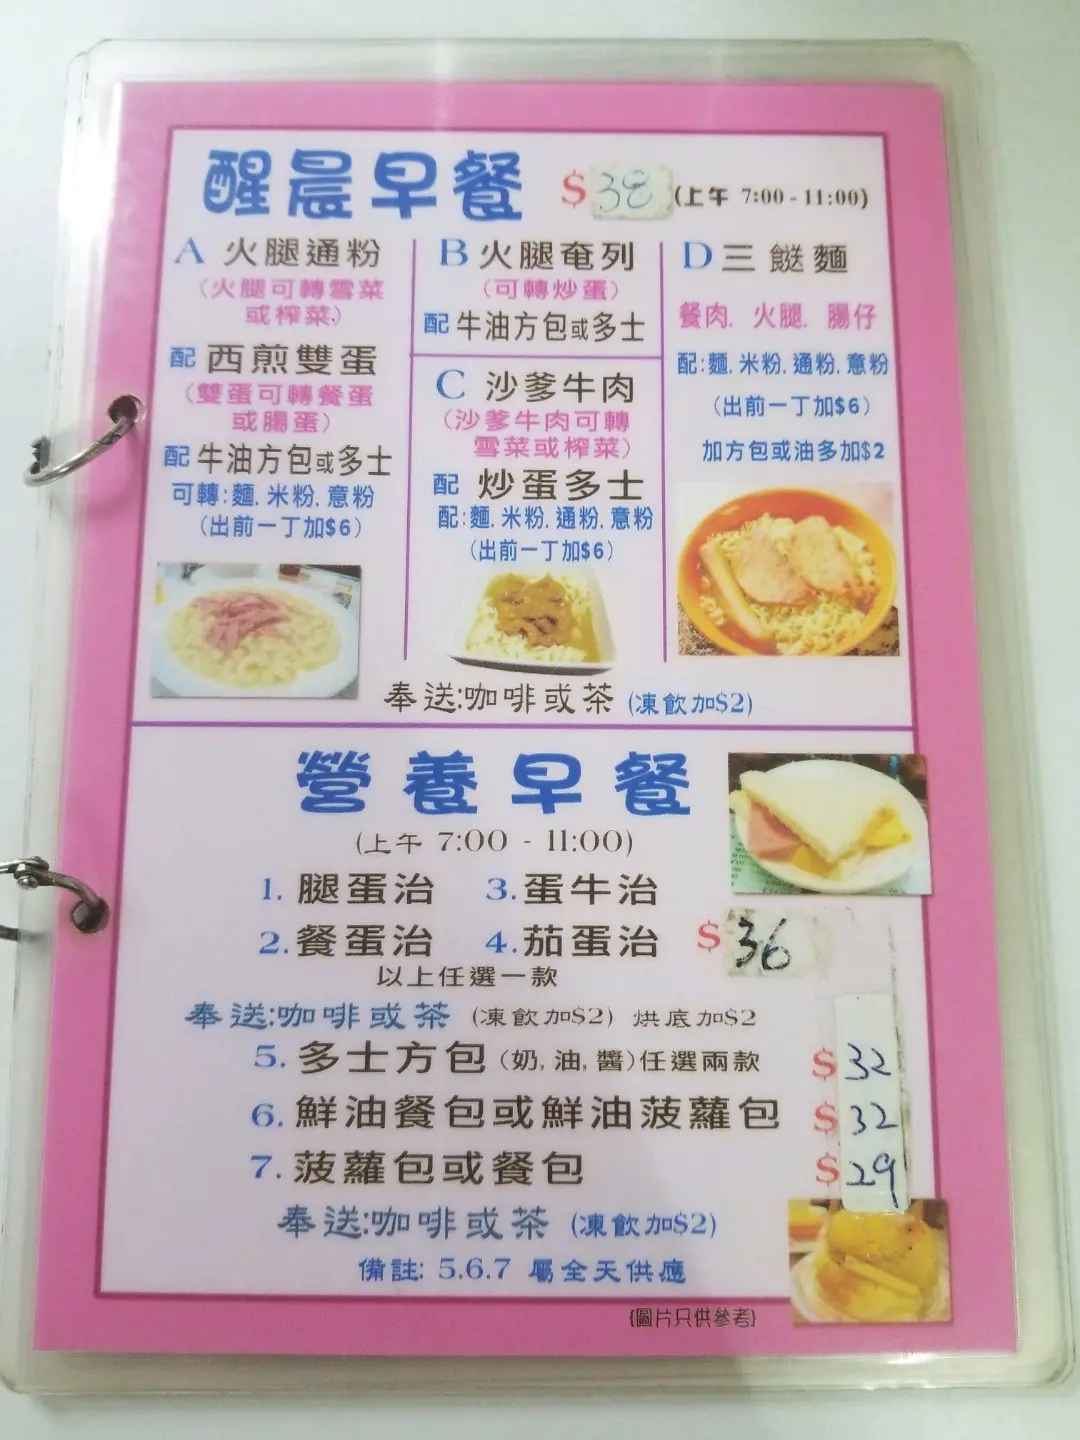 醒晨早餐 $38 (上午 7:00 - 11:00)
A 火腿通粉
(火腿可轉雪菜
或榨菜)
配 西煎雙蛋
(雙蛋可轉餐蛋
或腸蛋)
配 牛油方包或多士
可轉:麵, 米粉, 意粉
(出前一丁加$6)
B 火腿奄列
(可轉炒蛋)
配 牛油方包或多士
C 沙爹牛肉
(沙爹牛肉可轉
雪菜或榨菜)
配 炒蛋多士
配:麵, 米粉, 通粉, 意粉
(出前一丁加$6)
D 三餸麵
餐肉, 火腿, 腸仔
配:麵, 米粉, 通粉, 意粉
(出前一丁加$6)
加方包或油多加$2
奉送:咖啡或茶 (凍飲加$2)
營養早餐
(上午 7:00 - 11:00)
1. 腿蛋治 3. 蛋牛治
2. 餐蛋治 4. 茄蛋治 $36
以上任選一款
奉送:咖啡或茶 (凍飲加$2) 烘底加$2
5. 多士方包 (奶, 油, 醬)任選兩款 $32
6. 鮮油餐包或鮮油菠蘿包 $32
7. 菠蘿包或餐包 $29
奉送:咖啡或茶 (凍飲加$2)
備註: 5.6.7 屬全天供應
(圖片只供參考)